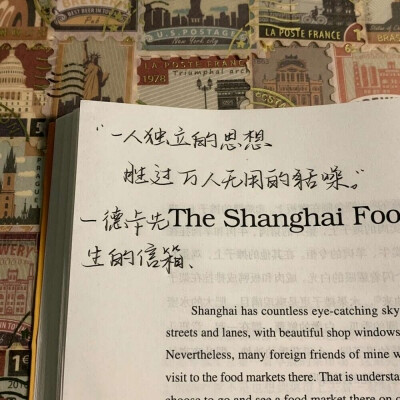 BEST BEER IN TOWN
U.S POSTAGE
New York city
LA POSTE FRANCE
LA POSTE FRANCE
1928
Triumphal arch
PRAGUE
“一人独立的思想
胜过万人无用的聒噪。”
—德卡先
生的信箱、
The Shanghai Foo
Shanghai has countless eye-catching sky
streets and lanes, with beautiful shop windows
Nevertheless, many foreign friends of mine w
visit to the food markets there. That is understa
choose to go and see a food market there on o